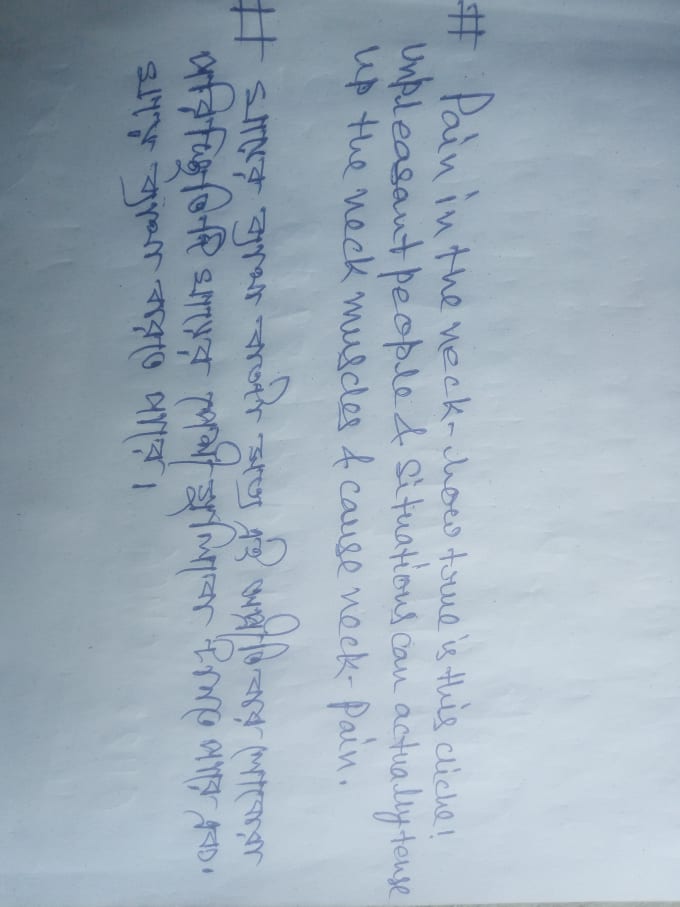 # Pain in the neck- how true is this cliche!
unpleasant people & situations can actually tense
up the neck muscles & cause neck- pain.
# ঘাড়ের ব্যথা সত্য এই অপ্রীতিকর
ঘাড়ের পারে এবং
ঘাড়ে ব্যথা করতে পারে।